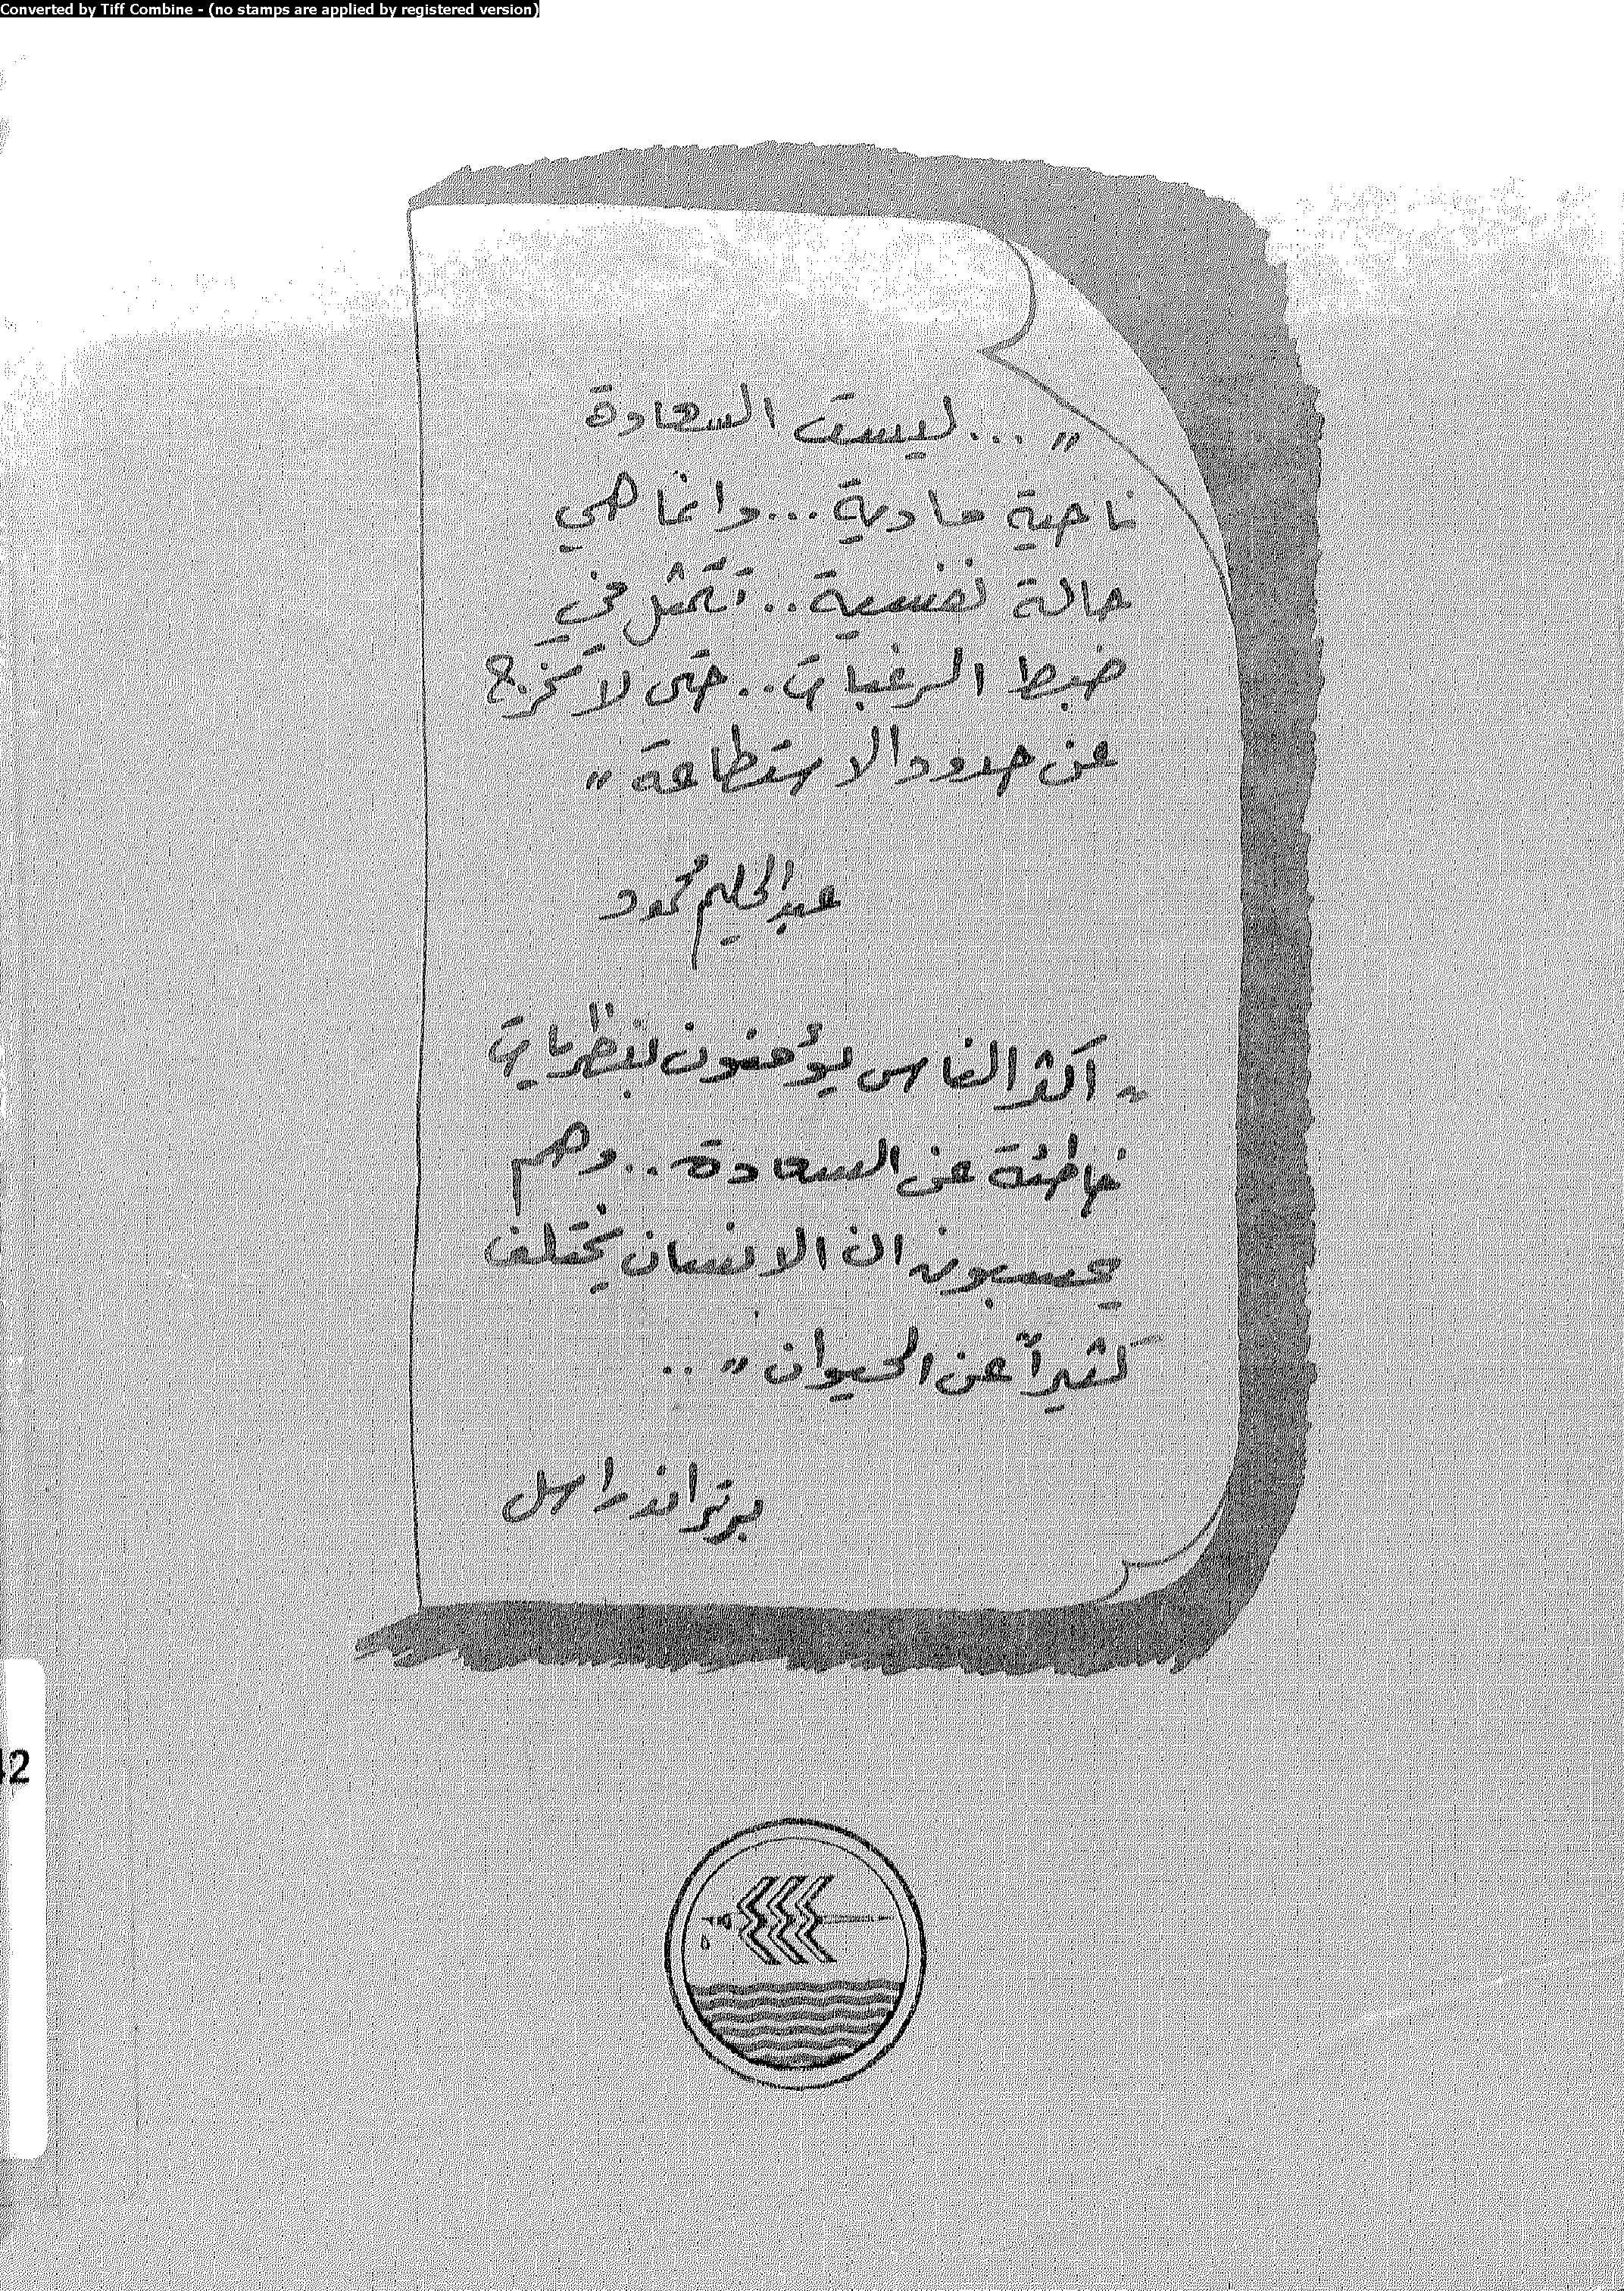 Converted by Tiff Combine - (no stamps are applied by registered version)
" ... ليست السعادة
ناحية مادية ... وانما هي
حالة نفسية .. تتمثل في
ضبط الرغبات .. حتى لا تخرج
عن حدود الاستطاعة "
عبدالحليم محمود
" اكثر الناس يؤمنون بنظريات
خاطئة عن السعادة .. وهم
يحسبون ان الانسان يختلف
كثيراً عن الحيوان " ..
برتراند راسل
42